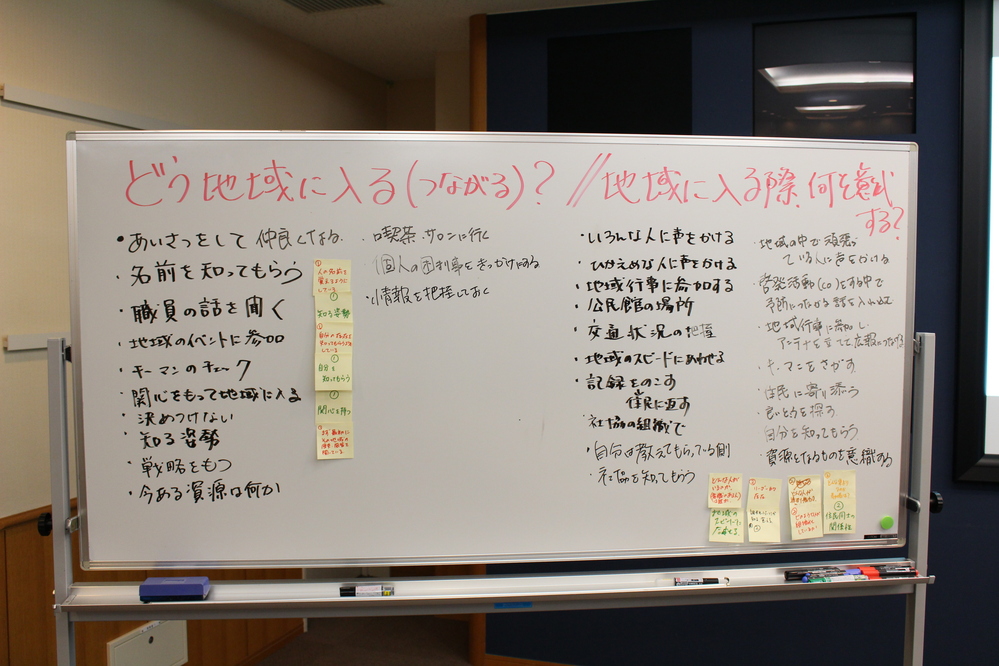 どう地域に入る(つながる)? // 地域に入る際、何を意識
する?
・あいさつをして 仲良くなる.
・名前を知ってもらう
・職員の話を聞く
・地域のイベントに参加
・キーマンのチェック
・関心をもって地域に入る
・決めつけない
・知る姿勢
・戦略をもつ
・今ある資源は何か
人の名前を
覚えるように
している
知る姿勢
自分を
知ってもらう
関心を持つ
・喫茶・サロンに行く
・個人の困利事をきっかけにする
・情報を把握しておく
・いろんな人に声をかける
・ひかえめな人に声をかける
・地域行事に参加する
・公民館の場所
・交通状況の把握
・地域のスピードにあわせる
・記録をのこす
住民に返す
・社協の組織で
・自分は教えてもらっている側
・社協を知ってもらう
・地域の中で頑張っ
ている人に声をかける
・啓発活動(co)をする中で
予防につながる話を入れ込む
・地域行事に参加し
アンテナを立てて広報につなげる
・キーマンをさがす
・住民に寄り添う
・良いところを探す
・自分を知ってもらう
・資源となるものを意識する
地域の
スピードに
合わせる
住民同士の
関係性